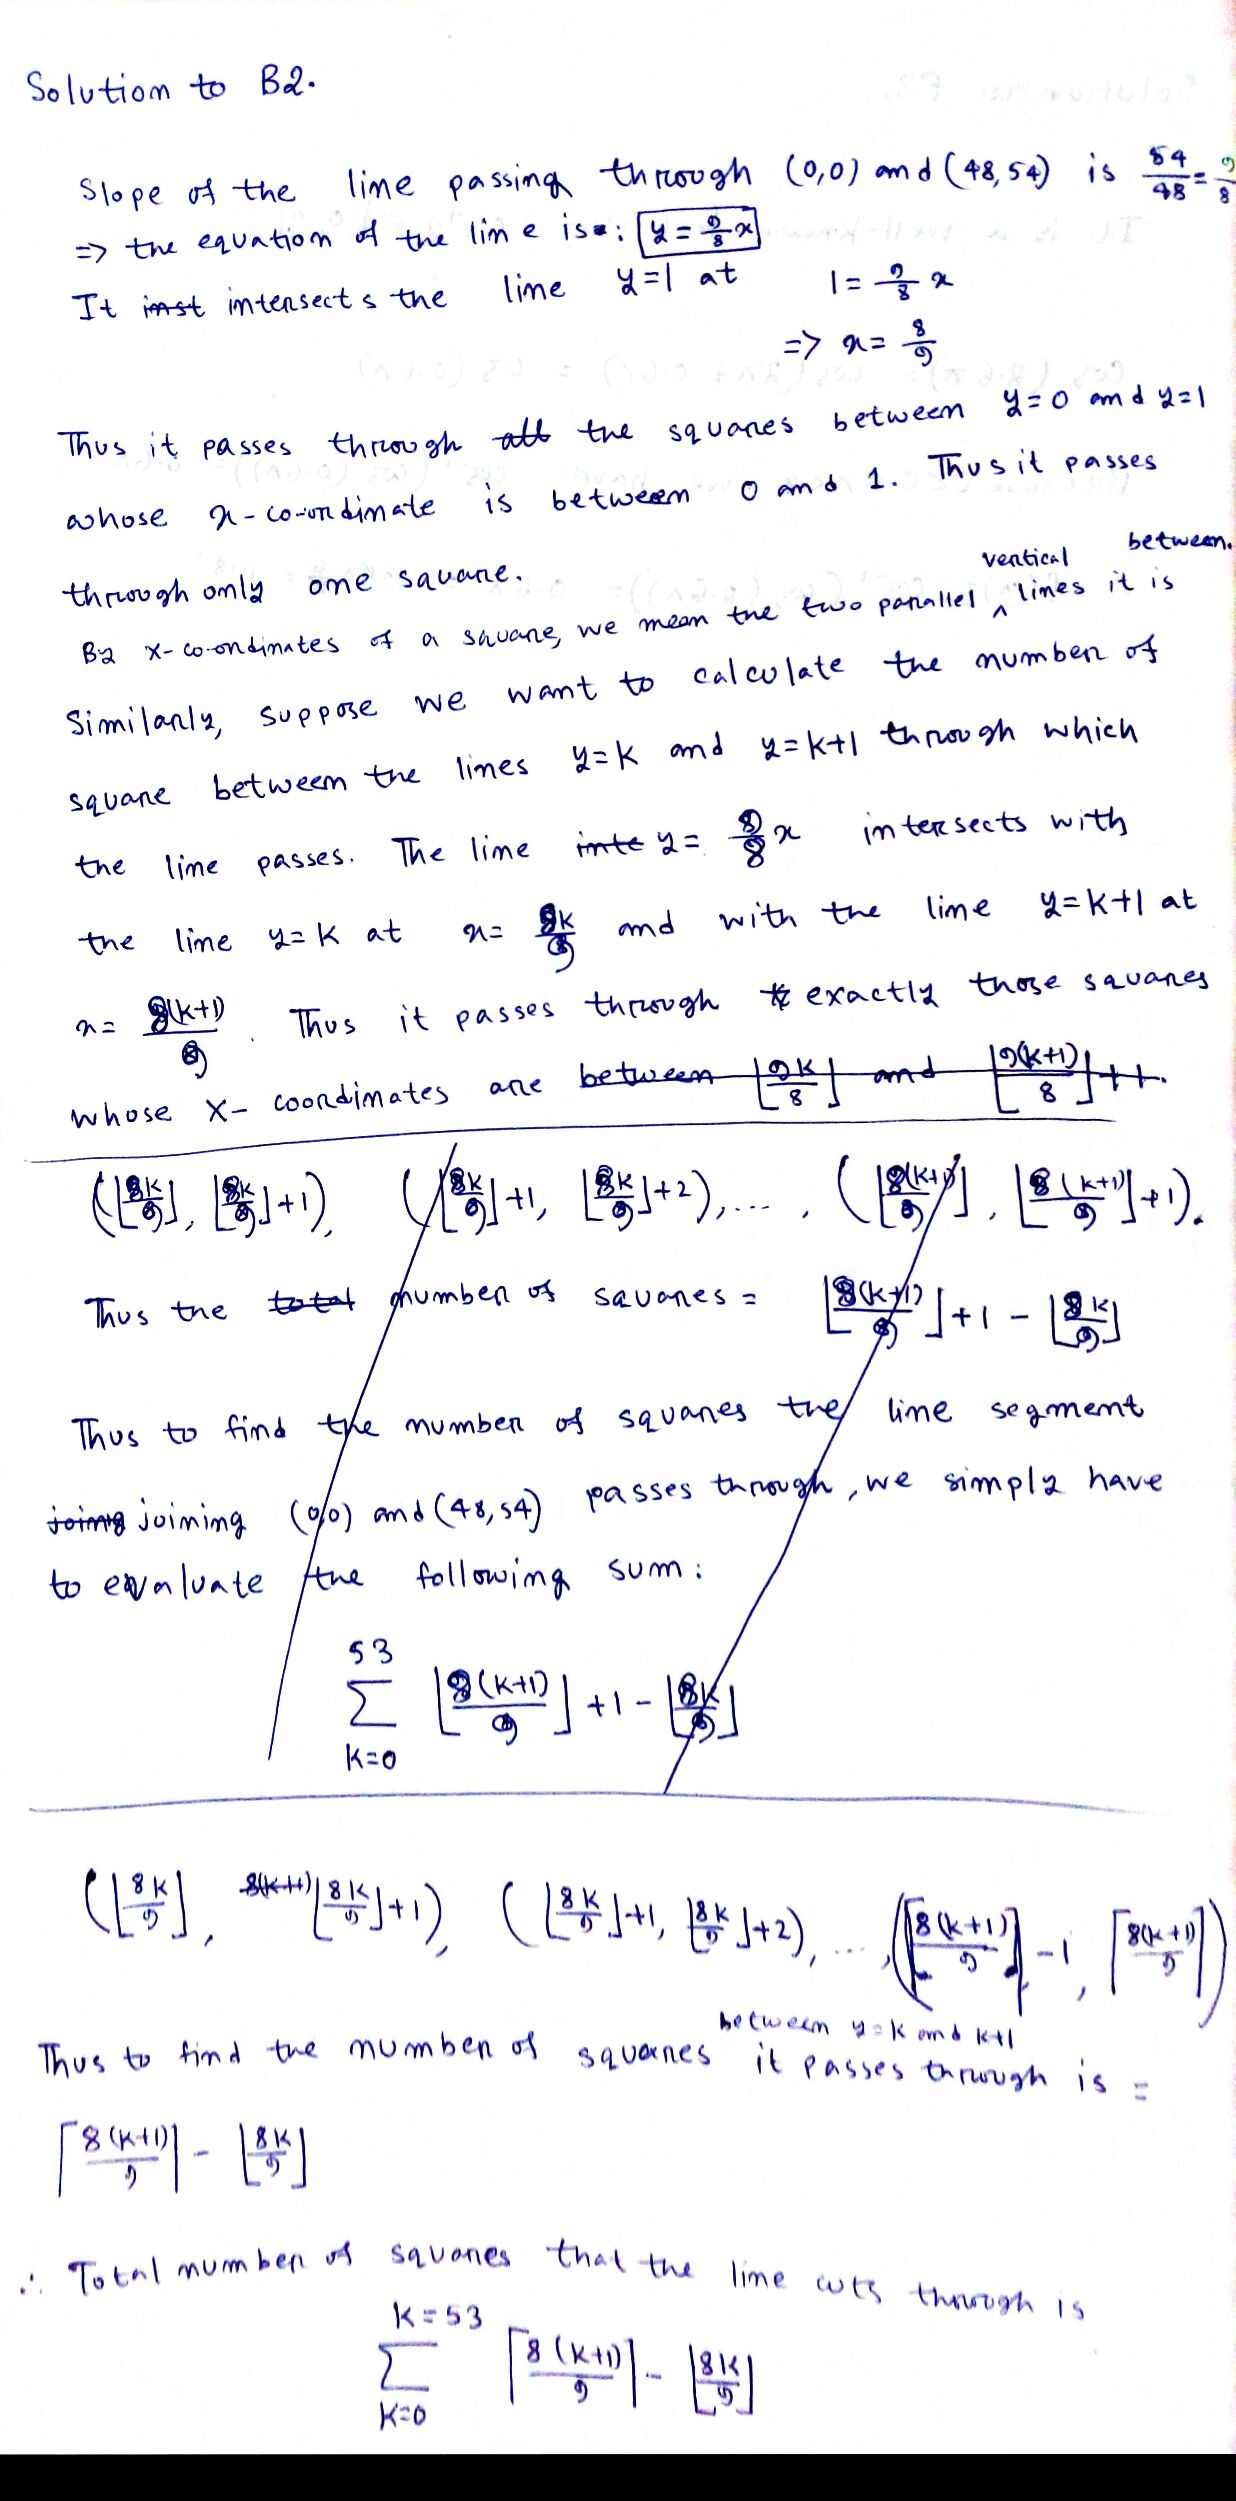 Solution to B2.
Slope of the line passing through (0,0) and (48,54) is 54/48 = 9/8
=> the equation of the line is: y = 9/8 x
It inst intersects the line y=1 at 1 = 9/8 x
=> x = 8/9
Thus it passes through all the squares between y=0 and y=1
whose x-co-ordinate is between 0 and 1. Thus it passes
through only one square.
By x-co-ordinates of a square, we mean the two parallel vertical lines it is between.
Similarly, suppose we want to calculate the number of
square between the lines y=k and y=k+1 through which
the line passes. The line inte y = 9/8 x intersects with
the line y=k at x= 8k/9 and with the line y=k+1 at
x= 8(k+1)/9. Thus it passes through exactly those squares
whose x- coordinates are between ⌊9k/8⌋ and ⌊9(k+1)/8⌋+1.
(⌊8k/9⌋, ⌊8k/9⌋+1), (⌊8k/9⌋+1, ⌊8k/9⌋+2), ..., (⌊8(k+1)/9⌋, ⌊8(k+1)/9⌋+1).
Thus the total number of squares = ⌊8(k+1)/9⌋+1-⌊8k/9⌋
Thus to find the number of squares the line segment
joinig joining (0,0) and (48,54) passes through, we simply have
to evaluate the following sum:
53
∑ ⌊8(k+1)/9⌋+1-⌊8k/9⌋
k=0
(⌊8k/9⌋, 8(k+1) ⌊8k/9⌋+1), (⌊8k/9⌋+1, ⌊8k/9⌋+2), ..., (⌈8(k+1)/9⌉-1, ⌈8(k+1)/9⌉)
Thus to find the number of squares between y=k and k+1 it passes through is =
⌈8(k+1)/9⌉ - ⌊8k/9⌋
∴ Total number of squares that the line cuts through is
k=53
∑ ⌈8(k+1)/9⌉ - ⌊8k/9⌋
k=0